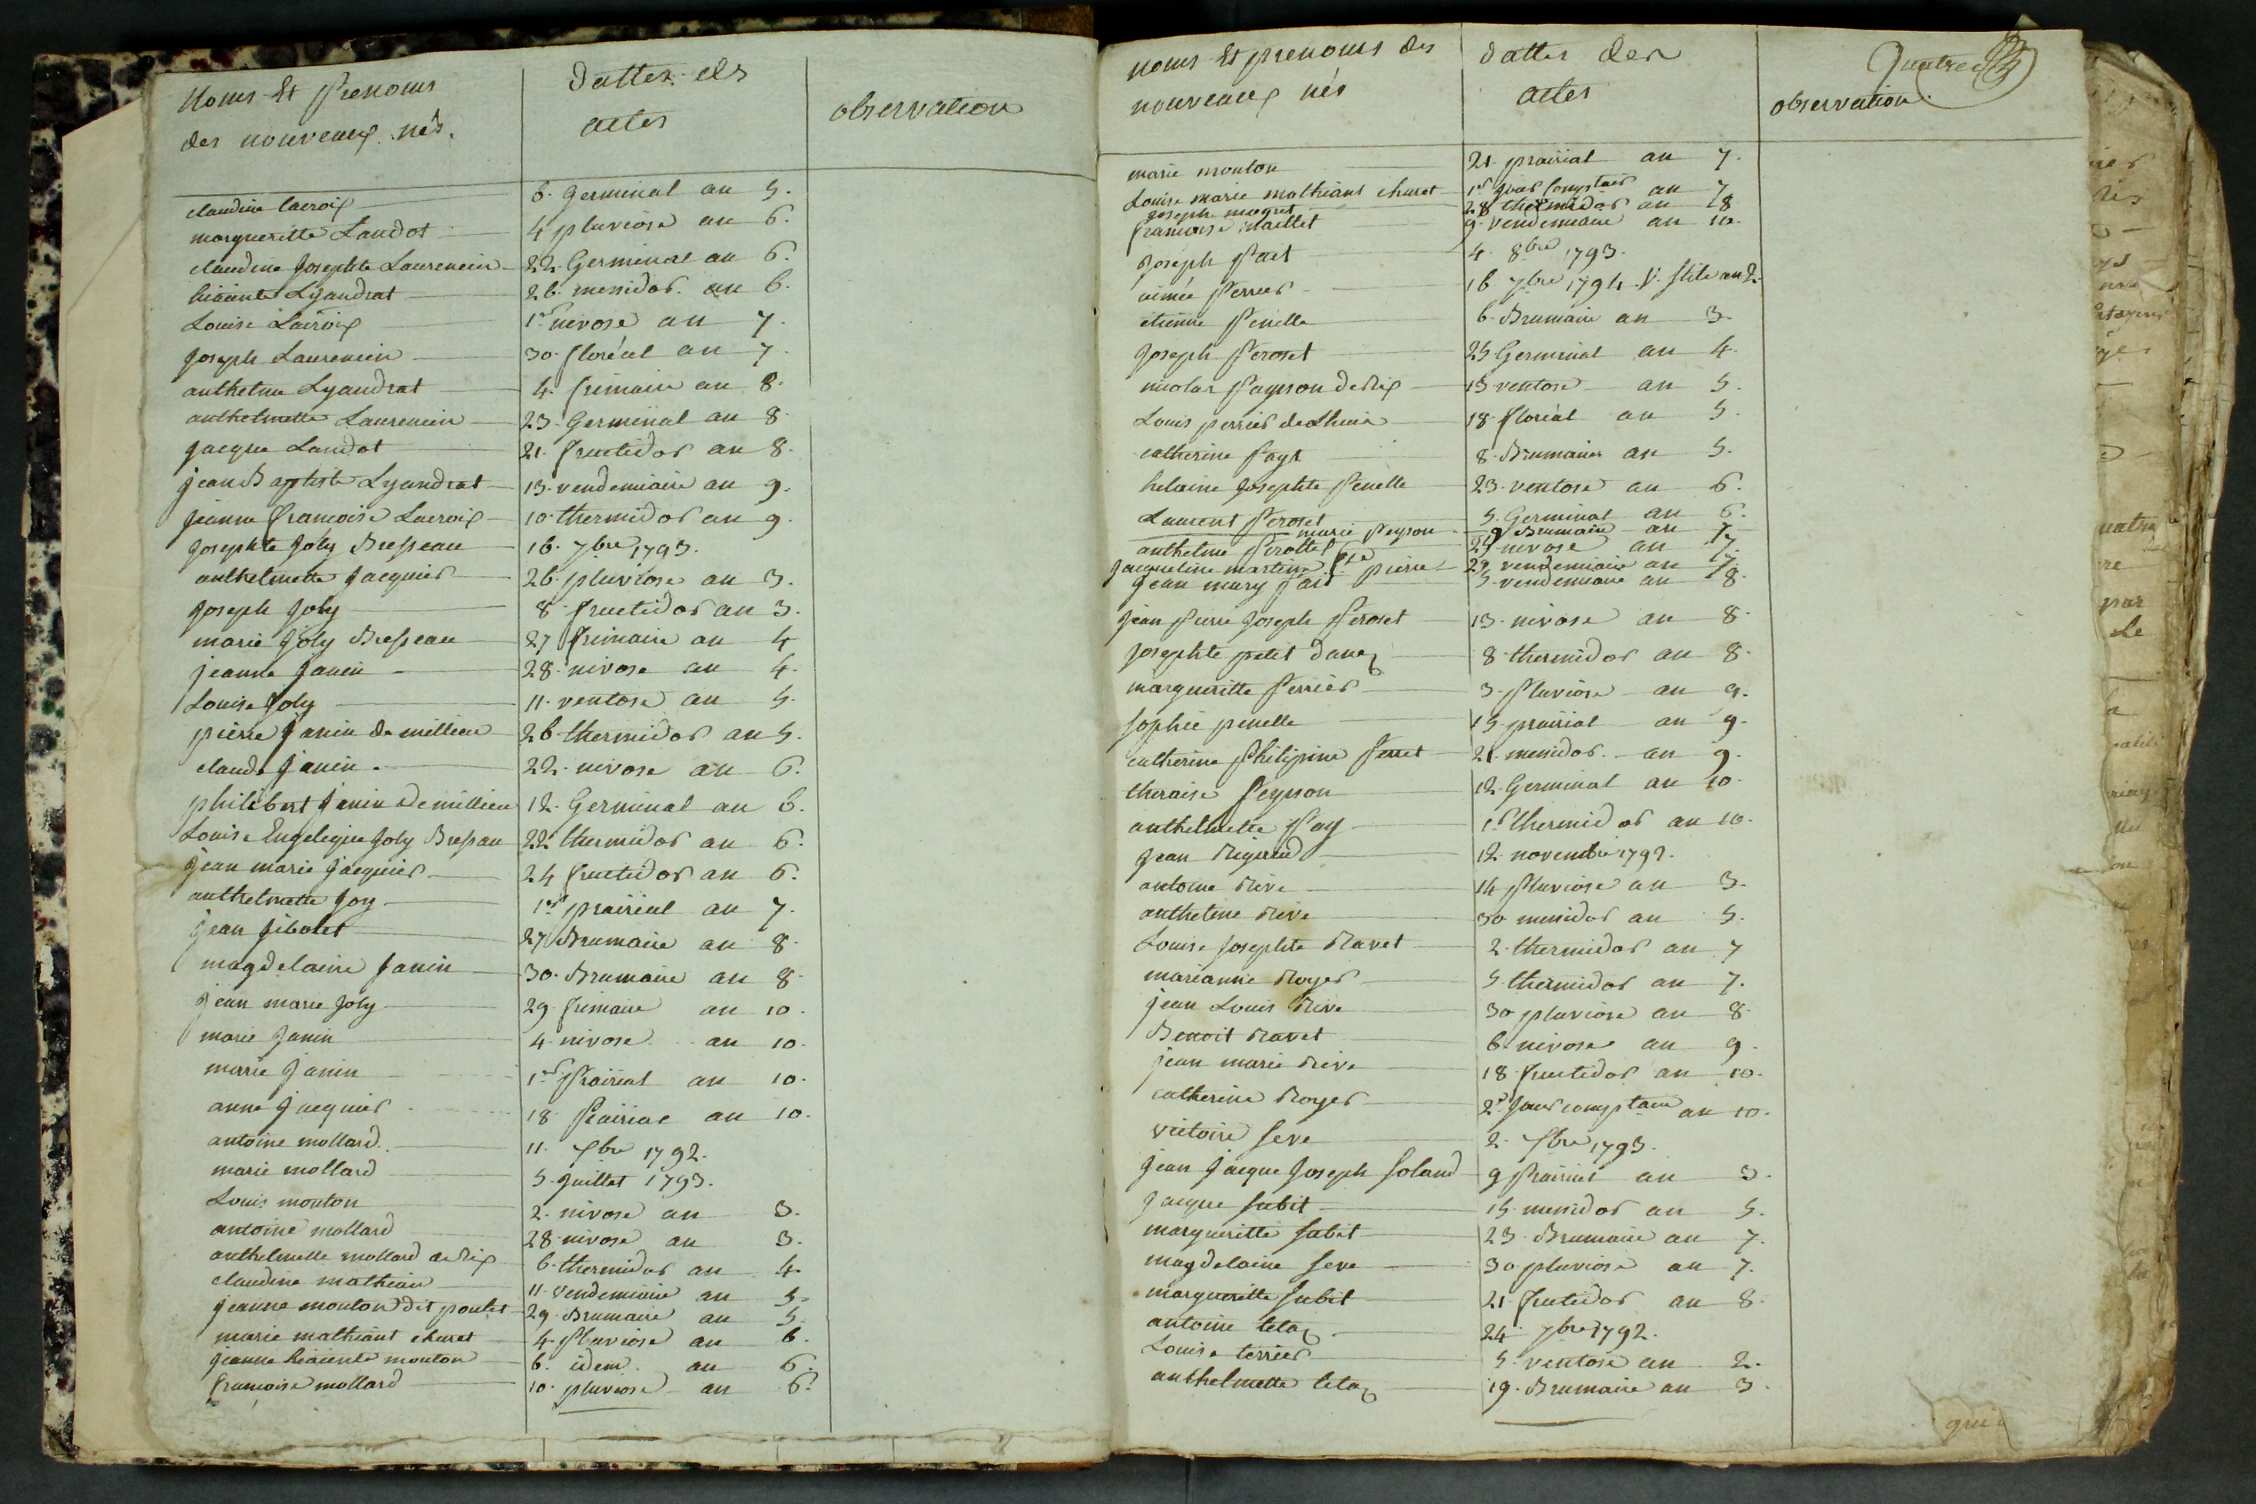 Noms Et Prenoms
des nouveaux nés.
dattes des
actes
observation
claudine lacroix 6. Germinal an 5.
margueritte Landot 4 pluviose an 6.
claudine Josephte Laurencin 22. Germinal an 6.
hiacinte Lyandrat 26. messidor an 6.
Louise Lacroix 1er nivose an 7.
Joseph Laurencin 30. floréal an 7.
anthelme Lyandrat 4. frimaire an 8.
anthelmette Laurencin 23. Germinal an 8.
Jacque Landot 21. fructidor an 8.
jean Baptiste Lyandrat 13. vendemiaire an 9.
jeanne francoise Lacroix 10. thermidor an 9.
Josephte Joly Bresseau 16. 7bre 1793.
anthelmette Jacquier 26. pluviose an 3.
Joseph Joly 8 fructidor an 3.
marie Joly Bresseau 27 frimaire an 4
jeanne Janin 28. nivose an 4.
Louise Joly 11. ventose an 5.
pierre Janin de millieu 26. thermidor an 5.
claude Janin 22. nivose an 6.
philibert Janin de millieu 12. Germinal an 6.
Louise Engelique Joly Bressau 22 thermidor an 6.
jean marie Jacquier 24 fructidor an 6.
anthelmette Joy 1er prairial an 7.
jean Jibolet 27 Brumaire an 8.
magdelaine Janin 30. Brumaire an 8.
jean marie Joly 29. frimaire an 10.
marie Janin 4. nivose an 10.
marie Janin 1er Prairial an 10.
anne Jacquier 18 Prairial an 10.
antoine mollard 11. 7bre 1792.
marie mollard 5. Juillet 1793.
Louis mouton 2. nivose an 3.
antoine mollard 28. nivose an 3.
anthelmette mollard de Rix 6. thermidor an 4.
claudine mathian 11. vendemiaire an 5.
jeanne mouton dit poulet 29. Brumaire an 5.
marie mathiant churet 4. Pluviose an 6.
jeanne hiacinte mouton 6. idem. an 6.
francoise mollard 10. pluviose an 6.
Noms Et prenoms des
nouveaux nés
dattes des
actes
Quatre
observation.
marie mouton 21. prairial an 7.
Louise marie mathiant churet 1er Jour Comptair an 7
Joseph magnet 28 thermidor an 8
francoise maillet 9. vendemiaire an 10.
Joseph Pait 4. 8bre 1793.
aimée Perrier 16 7bre 1794. V. stile an 2.
etienne Penelle 6. Brumaire an 3.
Joseph Peroset 25 Germinal an 4.
nicolas Payson de Rix 15 ventose an 5.
Louis perrier de Lhuis 18. floréal an 5.
catherine Payt 8. Brumaire an 5.
helaine Josephte Penelle 23. ventose an 6.
Laurent Peroset 5. Germinal an 6.
marie Peyson 9 Brumaire an 7
anthelme Perottet 25 nivose an 7
Jacqueline martine pierre 29 vendemiaire an 7.
Jean mary Pait 5 vendemiaire an 8.
jean Pierre Joseph Peroset 13. nivose an 8.
Josephte petit danez 8. thermidor an 8.
margueritte Perrier 3. Pluviose an 9.
sophie penelle 15. prairial an 9.
catherine Philipine Perret 21. messidor an 9.
theraise Peyson 12. Germinal an 10.
anthelmette Pay 1er thermidor an 10.
Jean Rigaud 12. novembre 1792.
antoine Rive 14 Pluviose an 3.
anthelme Rive 30 messidor an 5.
Louise Josephte Ravet 2. thermidor an 7
marianne Royer 5 thermidor an 7.
jean Louis Rive 30 pluviose an 8
Benoit Ravet 6. nivose an 9.
jean marie Rive 18 fructidor an 10.
catherine Royer 2e Jour comptaire an 10.
victoire seve 2. 7bre 1793.
jean jacque Joseph Soland 9 Prairial an 3.
Jacque Subit 15. messidor an 5.
margueritte Subit 23. Brumaire an 7.
magdelaine Seve 30 pluviose an 7.
margueritte Subit 21. fructidor an 8.
antoine tetaz 24 7bre 1792.
Louise terrier 5. ventose an 2.
anthelmette tetaz 19. Brumaire an 3.